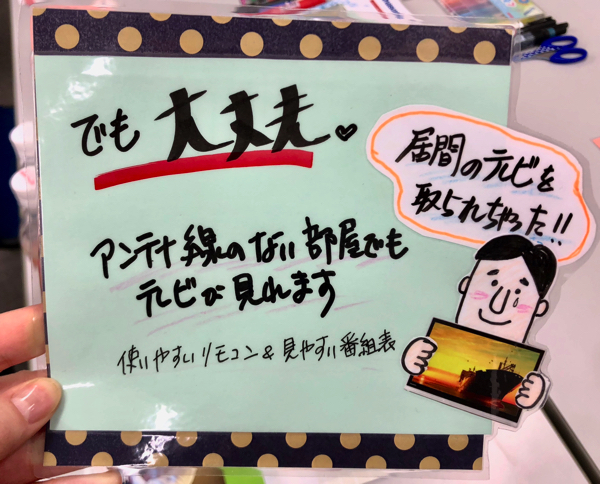 でも 大丈夫♡
アンテナ線のない部屋でも
テレビが見れます
使いやすいリモコン & 見やすい番組表
居間のテレビを
取られちゃった!!